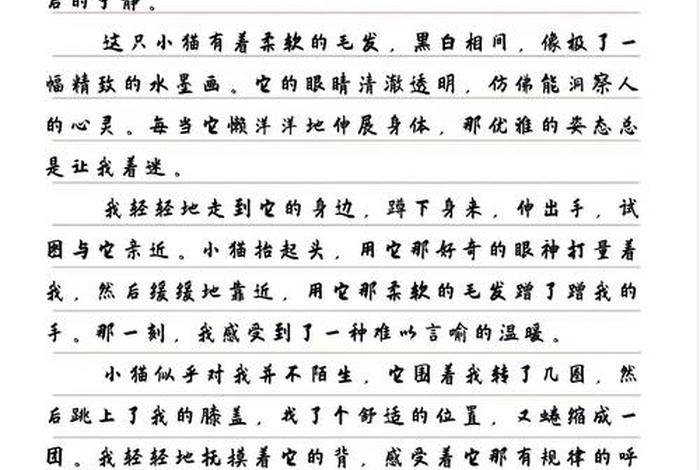 后的宁静。
这只小猫有着柔软的毛发，黑白相间，像极了一
幅精致的水墨画。它的眼睛清澈透明，仿佛能洞察人
的心灵。每当它懒洋洋地伸展身体，那优雅的姿态总
是让我着迷。
我轻轻地走到它的身边，蹲下身来，伸出手，试
图与它亲近。小猫抬起头，用它那好奇的眼神打量着
我，然后缓缓地靠近，用它那柔软的毛发蹭了蹭我的
手。那一刻，我感受到了一种难以言喻的温暖。
小猫似乎对我并不陌生，它围着我转了几圈，然
后跳上了我的膝盖，找了个舒适的位置，又蜷缩成一
团。我轻轻地抚摸着它的背，感受着它那有规律的呼